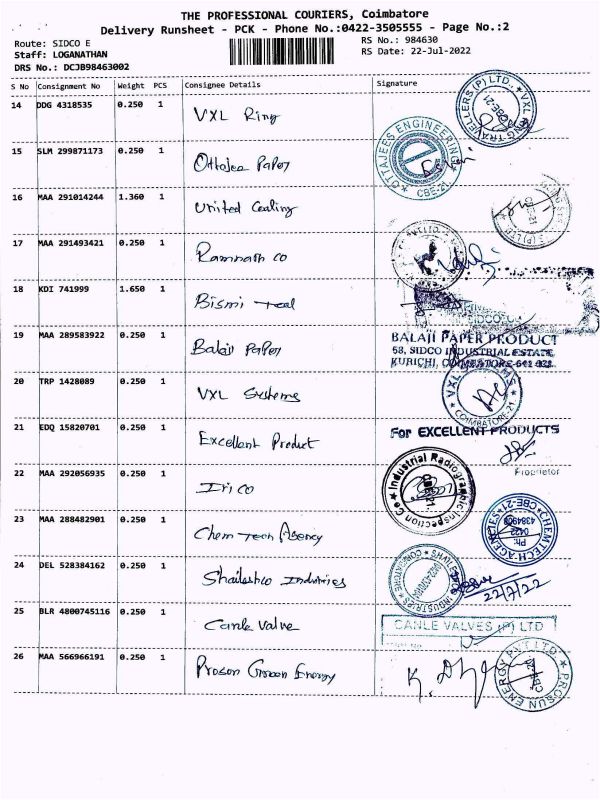 THE PROFESSIONAL COURIERS, Coimbatore
Delivery Runsheet - PCK - Phone No.:0422-3505555 - Page No.:2
Route: SIDCO E
RS No.: 984630
Staff: LOGANATHAN
RS Date: 22-Jul-2022
DRS No.: DCJB98463002
S No Consignment No Weight PCS Consignee Details Signature
14 DDG 4318535 0.250 1 VXL Ring
15 SLM 299871173 0.250 1 Ottajee Paper
OTTAJEES ENGINEERING
CBE-21
16 MAA 291014244 1.360 1 United Cealing
17 MAA 291493421 0.250 1 Ramnath co
18 KDI 741999 1.650 1 Bismi Teal
19 MAA 289583922 0.250 1 Balaji Paper
BALAJI PAPER PRODUCT
58, SIDCO INDUSTRIAL ESTATE,
KURICHI, COIMBATORE-641 021.
20 TRP 1428089 0.250 1 VXL Systems
VXL
COIMBATORE-21
21 EDQ 15820701 0.250 1 Excellent Product
For EXCELLENT PRODUCTS
Proprietor
22 MAA 292056935 0.250 1 Iri co
Industrial Radiographic Inspection Co
CBE-21
23 MAA 288482901 0.250 1 Chem Tech Agency
CHEMTECH AGENCIES
CBE-21
Ph: 0422
24 DEL 528384162 0.250 1 Shaileshco Industries
22/7/22
25 BLR 4800745116 0.250 1 Canle Valve
CANLE VALVES (P) LTD
26 MAA 566966191 0.250 1 Proson Green Energy
PROSUN ENERGY PVT LTD
CBE-21